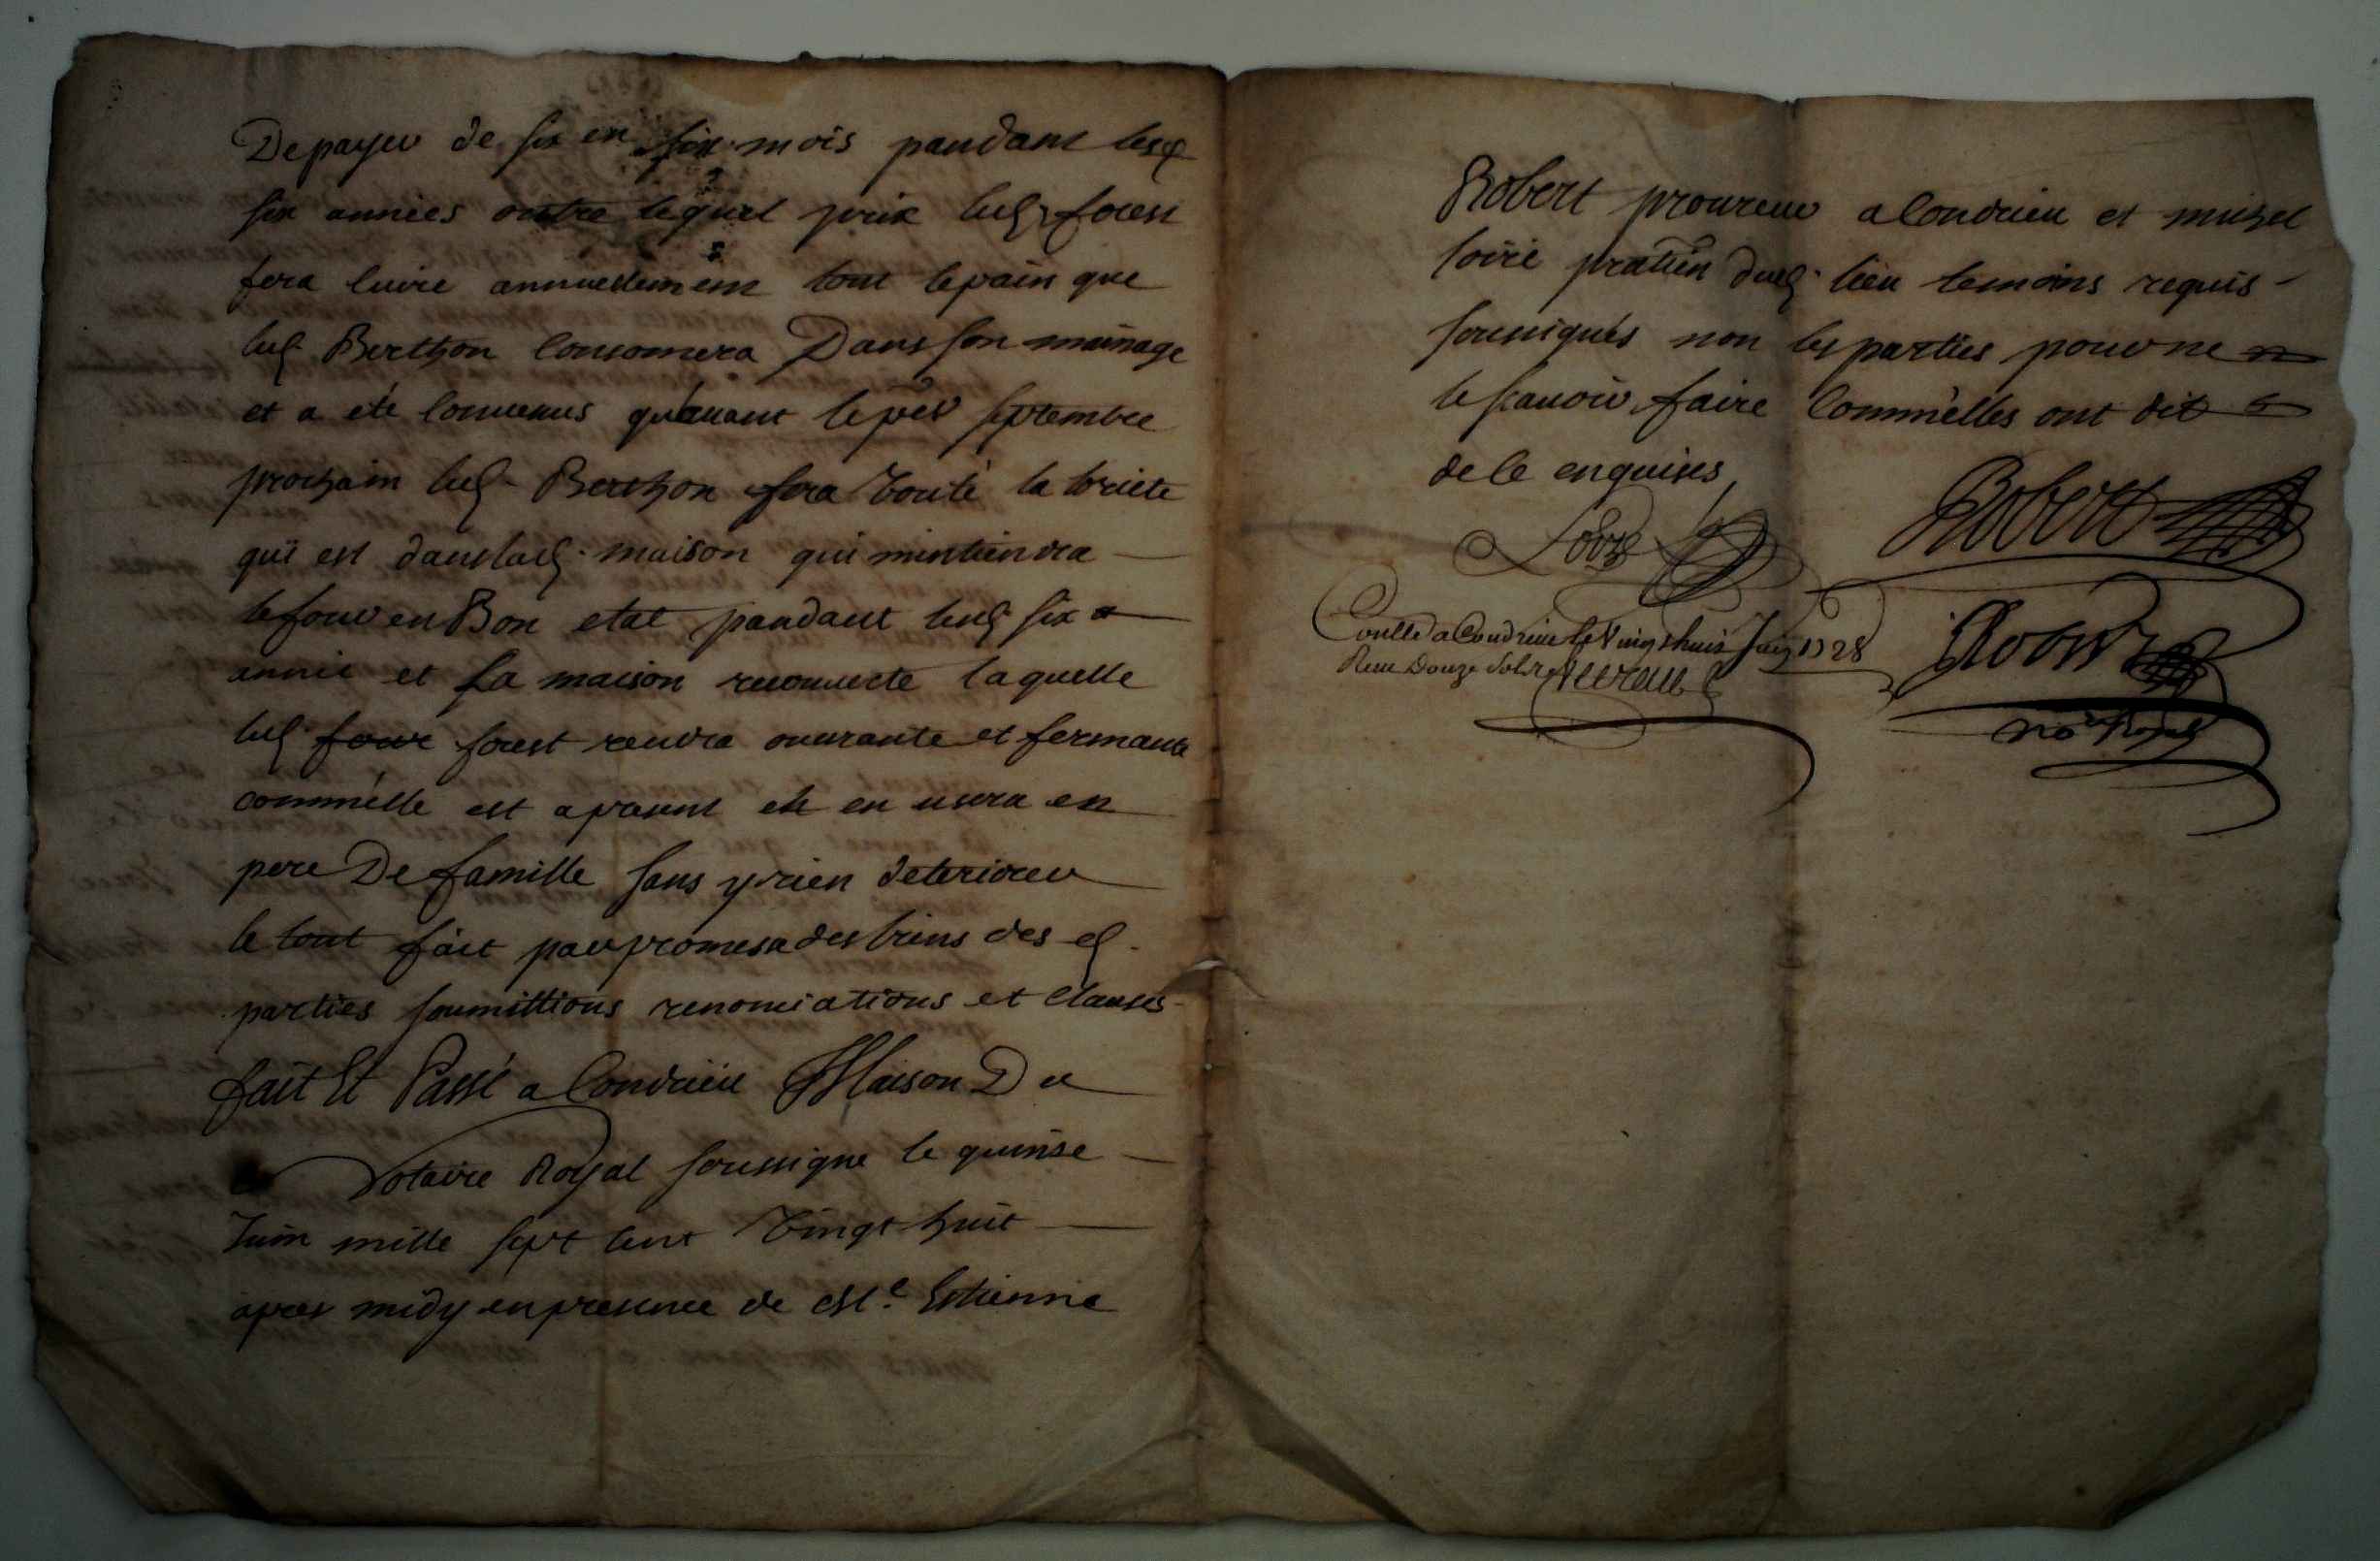 De payer de six en six mois pandant lesd
six années outre lequel prix led forest
fera cuire annuellement tout le pain que
led Berthon consomera Dans son mainage
et a été convenus qu'avant le per septembre
prochain led Berthon fera toute la
qui est dans lad maison qui mintiendra
le four en Bon etat pandant lesd six
anneé et sa maison recouverte laquelle
led four forest rendra ouurante et fermante
comm'elle est apresent et en usera en
pere De famille sans y rien deteriorer
le tout fait par promesa des biens des d
parties soumittions renonciations et clauses
fait Et Passé a Condrieu Maison Du
Notaire Royal soussigne le quinse
Juin mille sept cent Vingt huit
apres midy en presence de Me Estienne
Robert procureur a Condrieu et michel
loire pratien dud lieu temoins requis
soussignés non les parties pour ne
le scauoir faire comm'elles ont dit
de ce enquises
Robert
Loire
Conllé a Condrieu le Vingt huit Juin 1728
Receu Douze sols
no Royal